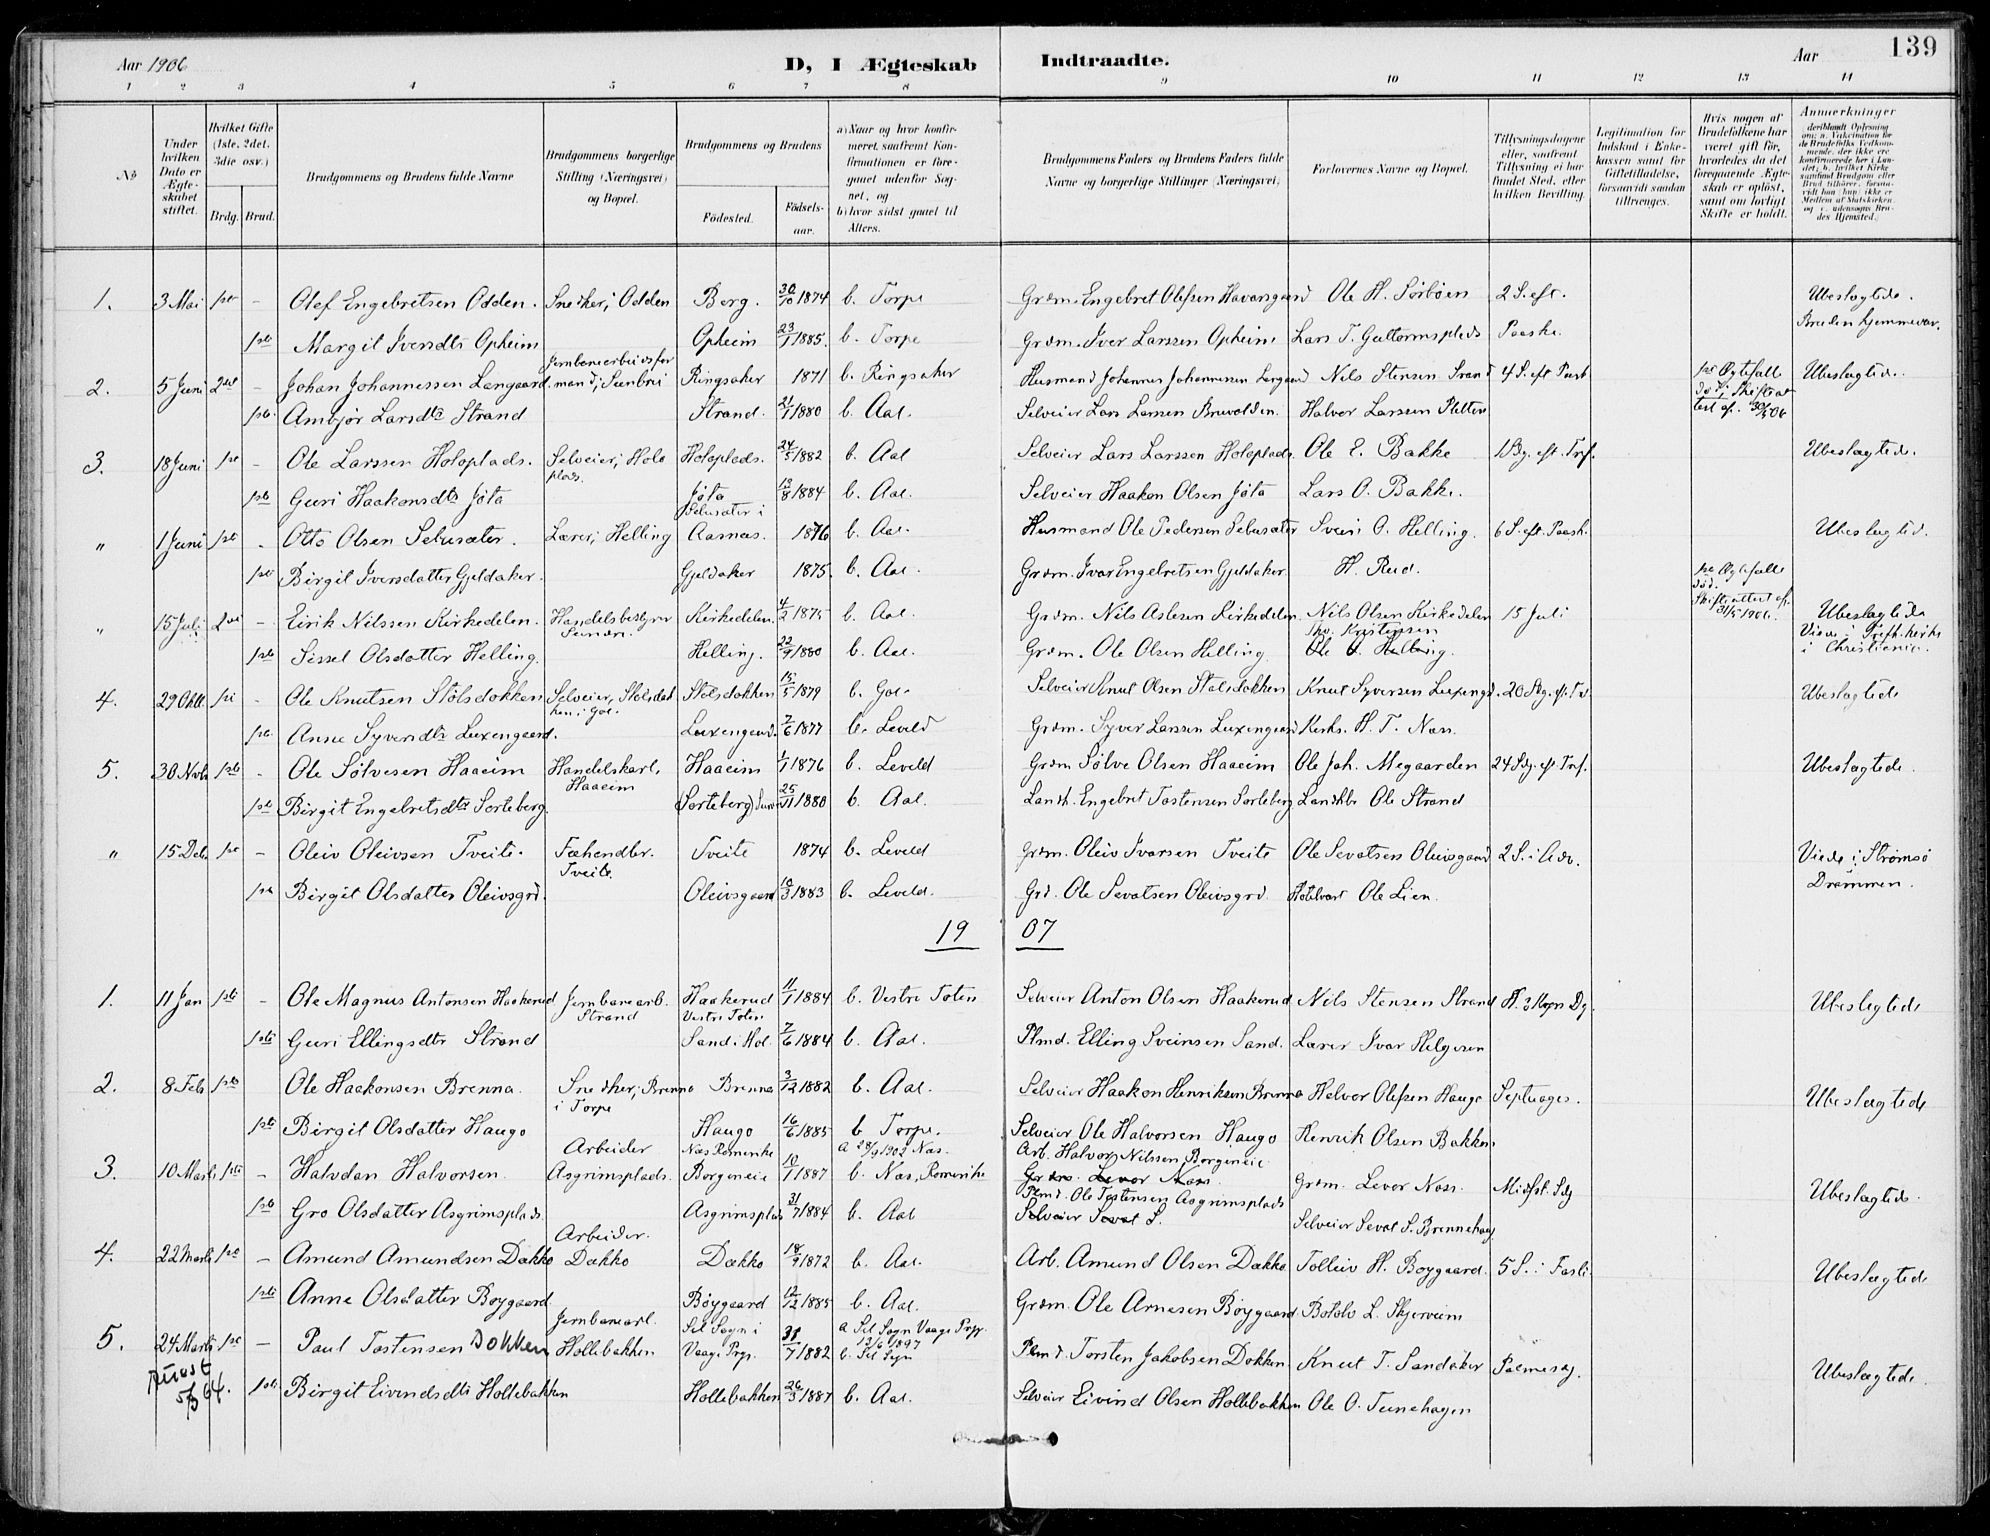 Aar 1906
D, I Ægteskab Indtraadte.
Aar 139
1 2 3 4 5 6 7 8 9 10 11 12 13 14
No
Under hvilken Dato er Ægteskabet stiftet.
Hvilket Gifte (1ste, 2det, 3die osv.)
Brdg. Brud.
Brudgommens og Brudens fulde Navne
Brudgommens borgerlige Stilling (Næringsvei) og Bopæl.
Brudgommens og Brudens
Fødested. Fødselsaar.
a) Naar og hvor konfirmeret, saafremt Konfirmationen er foregaaet udenfor Sognet, og
b) hvor sidst gaaet til Alters.
Brudgommens Faders og Brudens Faders fulde Navne og borgerlige Stillinger (Næringsvei)
Forlovernes Navne og Bopæl.
Tillysningsdagene eller, saafremt Tillysning ei har fundet Sted, efter hvilken Bevilling.
Legitimation for Indskud i Enkekassen samt for Giftetilladelse, forsaavidt saadan tiltrænges.
Hvis nogen af Brudefolkene har været gift før, hvorledes da det foregaaende Ægteskab er opløst, samt om lovligt Skifte er holdt.
Anmærkninger
1. 3 Mai 1ste - Olef Engebretsen Odden. Snedker, Odden Berg. 30/10 1874 b. Torpe Grdm. Engebret Olefsen Havarsgaard Ole H. Sørbøen 2 S. eft. Ubeslægtede.
1ste Margit Iversdtr Opheim Opheim 23/1 1885. b. Torpe Grdm. Iver Larssen Opheim Lars T. Guttormsplads Paaske. Bruden hjemmevær.
2. 5 Juni 2det - Johan Johannessen Langaard. Jernbanearbeidsformand, Sundrei Ringsaker 1871 b. Ringsaker Husmand Johannes Johannessen Langaard Nils Stensen Strand 4 S. eft. Paask Ubeslægtede.
1ste Ambjør Larsdtr Strand Strand. 21/1 1880 b. Aal. Selveier Lars Larssen Bruvolden. Halvor Larssen Pletten
3. 18 Juni 1ste - Ole Larssen Holoplads. Selveier, Holoplads. Holoplads. 24/5 1882 b. Aal Selveier Lars Larssen Holoplads Ole E. Bakke Ubeslægtede.
1ste Guri Haakonsdtr Jøta Jøta 13/8 1884 b. Aal. Selveier Haakon Olsen Jøta Lars O. Bakke.
" 1 Juni 1ste - Otto Olsen Sebusæter. Lærer, Helling Sebusæter i Aasnæs. 1876 b. Aal. Husmand Ole Pedersen Sebusæter Svein O. Helling. 6 S. eft. Paask. Ubeslægted.
1ste Birgit Iversdatter Gjeldaker. Gjeldaker 1875. b. Aal. Grdm. Ivar Engebretsen Gjeldaker H. Rud.
" 15 Juli 2det - Eirik Nilssen Kirkedelen. Handelsbestyrer Sundre. Kirkedelen. 4/2 1875 b. Aal. Grdm. Nils Aslesen Kirkedelen Nils Olsen Kirkedelen 15 Juli Ubeslægtede
1ste Sissel Olsdatter Helling. Helling. 22/9 1880 b. Aal. Grdm. Ole Olsen Helling Kristensen Ole O. Helling. i Christiania.
4. 29 Okt. - Ole Knutsen Stølsdokken Selveier, Stølsdokken i Gol. Stølsdokken 15/5 1879 b. Gol. Selveier Knut Olsen Stølsdokken Knut Syversen Luxengd. Ubeslægtede
Anne Syversdtr Luxengaard. Luxengaard. 7/6 1877 b. Leveld Grdm. Syver Larssen Luxengaard Kirks. H. T. Næss.
5. 30 Novb 1ste - Ole Sølvesen Haaeim Handelskarl, Haaeim Haaeim 1/1 1876 b. Leveld Grdm Sølve Olsen Haaeim Ole Joh. Megaarden 24 Sdg. eft Tref. Ubeslægtede.
1ste Birgit Engebretsdtr Sorteberg. (Sorteberg) 25/11 1880 b. Aal. Landh. Engebret Tostensen Sorteberg Landhdl. Ole Strand
" 15 Deb. 1ste - Oleiv Oleivsen Tveite. Fæhandler. Tveite. Tveite 1874 b. Leveld Grdm. Oleiv Ivarsen Tveite Ole Sevatsen Oleivsgaard 2 S. i Adv. Viede i Strømsø
1ste Birgit Olsdatter Oleivsgrd. Oleivsgaard 10/3 1883 b. Leveld. Grd. Ole Sevatsen Oleivsgrd. Hotelvært Ole Lien. Drammen.
19 07
1. 11 Jan 1ste - Ole Magnus Antonsen Haakerud Jernbanearb. Strand Haakerud Vestre Toten 11/1 1884 b. Vestre Toten Selveier Anton Olsen Haakerud Nils Stensen Strand Ubeslægtede
1ste Guri Ellingsdtr Strand Sand i Hol. 7/6 1884 b. Aal. Plmd. Elling Sveinsen Sand. Lærer Ivar Helgesen
2. 8 Feb 1ste Ole Haakonsen Brenna. Snedker, Brenna i Torpe Brenna 3/12 1882 b. Aal. Selveier Haakon Henriksen Brenna Halvor Olefsen Haugo Septuages. Ubeslægtede
1ste Birgit Olsdatter Haugo Haugo 16/6 1885 b Torpe. Selveier Ole Halvorsen Haugo Henrik Olsen Bakken
3. 10 Marts 1ste - Halvdan Halvorsen Arbeider Asgrimsplads. Næs Romerike Borgeneie 10/1 1887 a 28/9 1902 Næs. b. Næs, Romerike Arb. Halvor Nilssen Borgeneie Grdm. Levor Næss. Grdm. Levor Næss. Midfst. Sdg Ubeslægtede.
1ste Gro Olsdatter Asgrimsplads Asgrimsplads 31/7 1884 b. Aal Plmd. Ole Tostensen Asgrimsplads Selveier Sevat S. Selveier Sevat S. Brennehaug
4. 22 Marts 1ste - Amund Amundsen Dokko Arbeider. Dokko Dokko 18/9 1872 b. Aal. Arb. Amund Olsen Dokko Tolleiv H. Bøygaard. 5 S. i Faste Ubeslægtede
1ste Anne Olsdatter Bøygaard Bøygaard 12/12 1885 b. Aal. Grdm. Ole Arnesen Bøygaard. Botolv L. Skjerveim
5. 24 Marts 1ste - Paul Tostensen Dokken Jernbanearb. Hollebakken Sel Sogn i Vaage Prgj. 31/7 1882 a Sel Sogn Vaage Prgj. 13/6 1897 b. Sel Sogn Plmd. Torsten Jakobsen Dokken Knut T. Sandaker Palmesøg. Ubeslægtede.
Attest 5/3 64. 1ste Birgit Eivendsdtr Hollebakken Hollebakken 26/3 1887 b. Aal. Selveier Eivind Olsen Hollebakken Ole O. Tunehagen